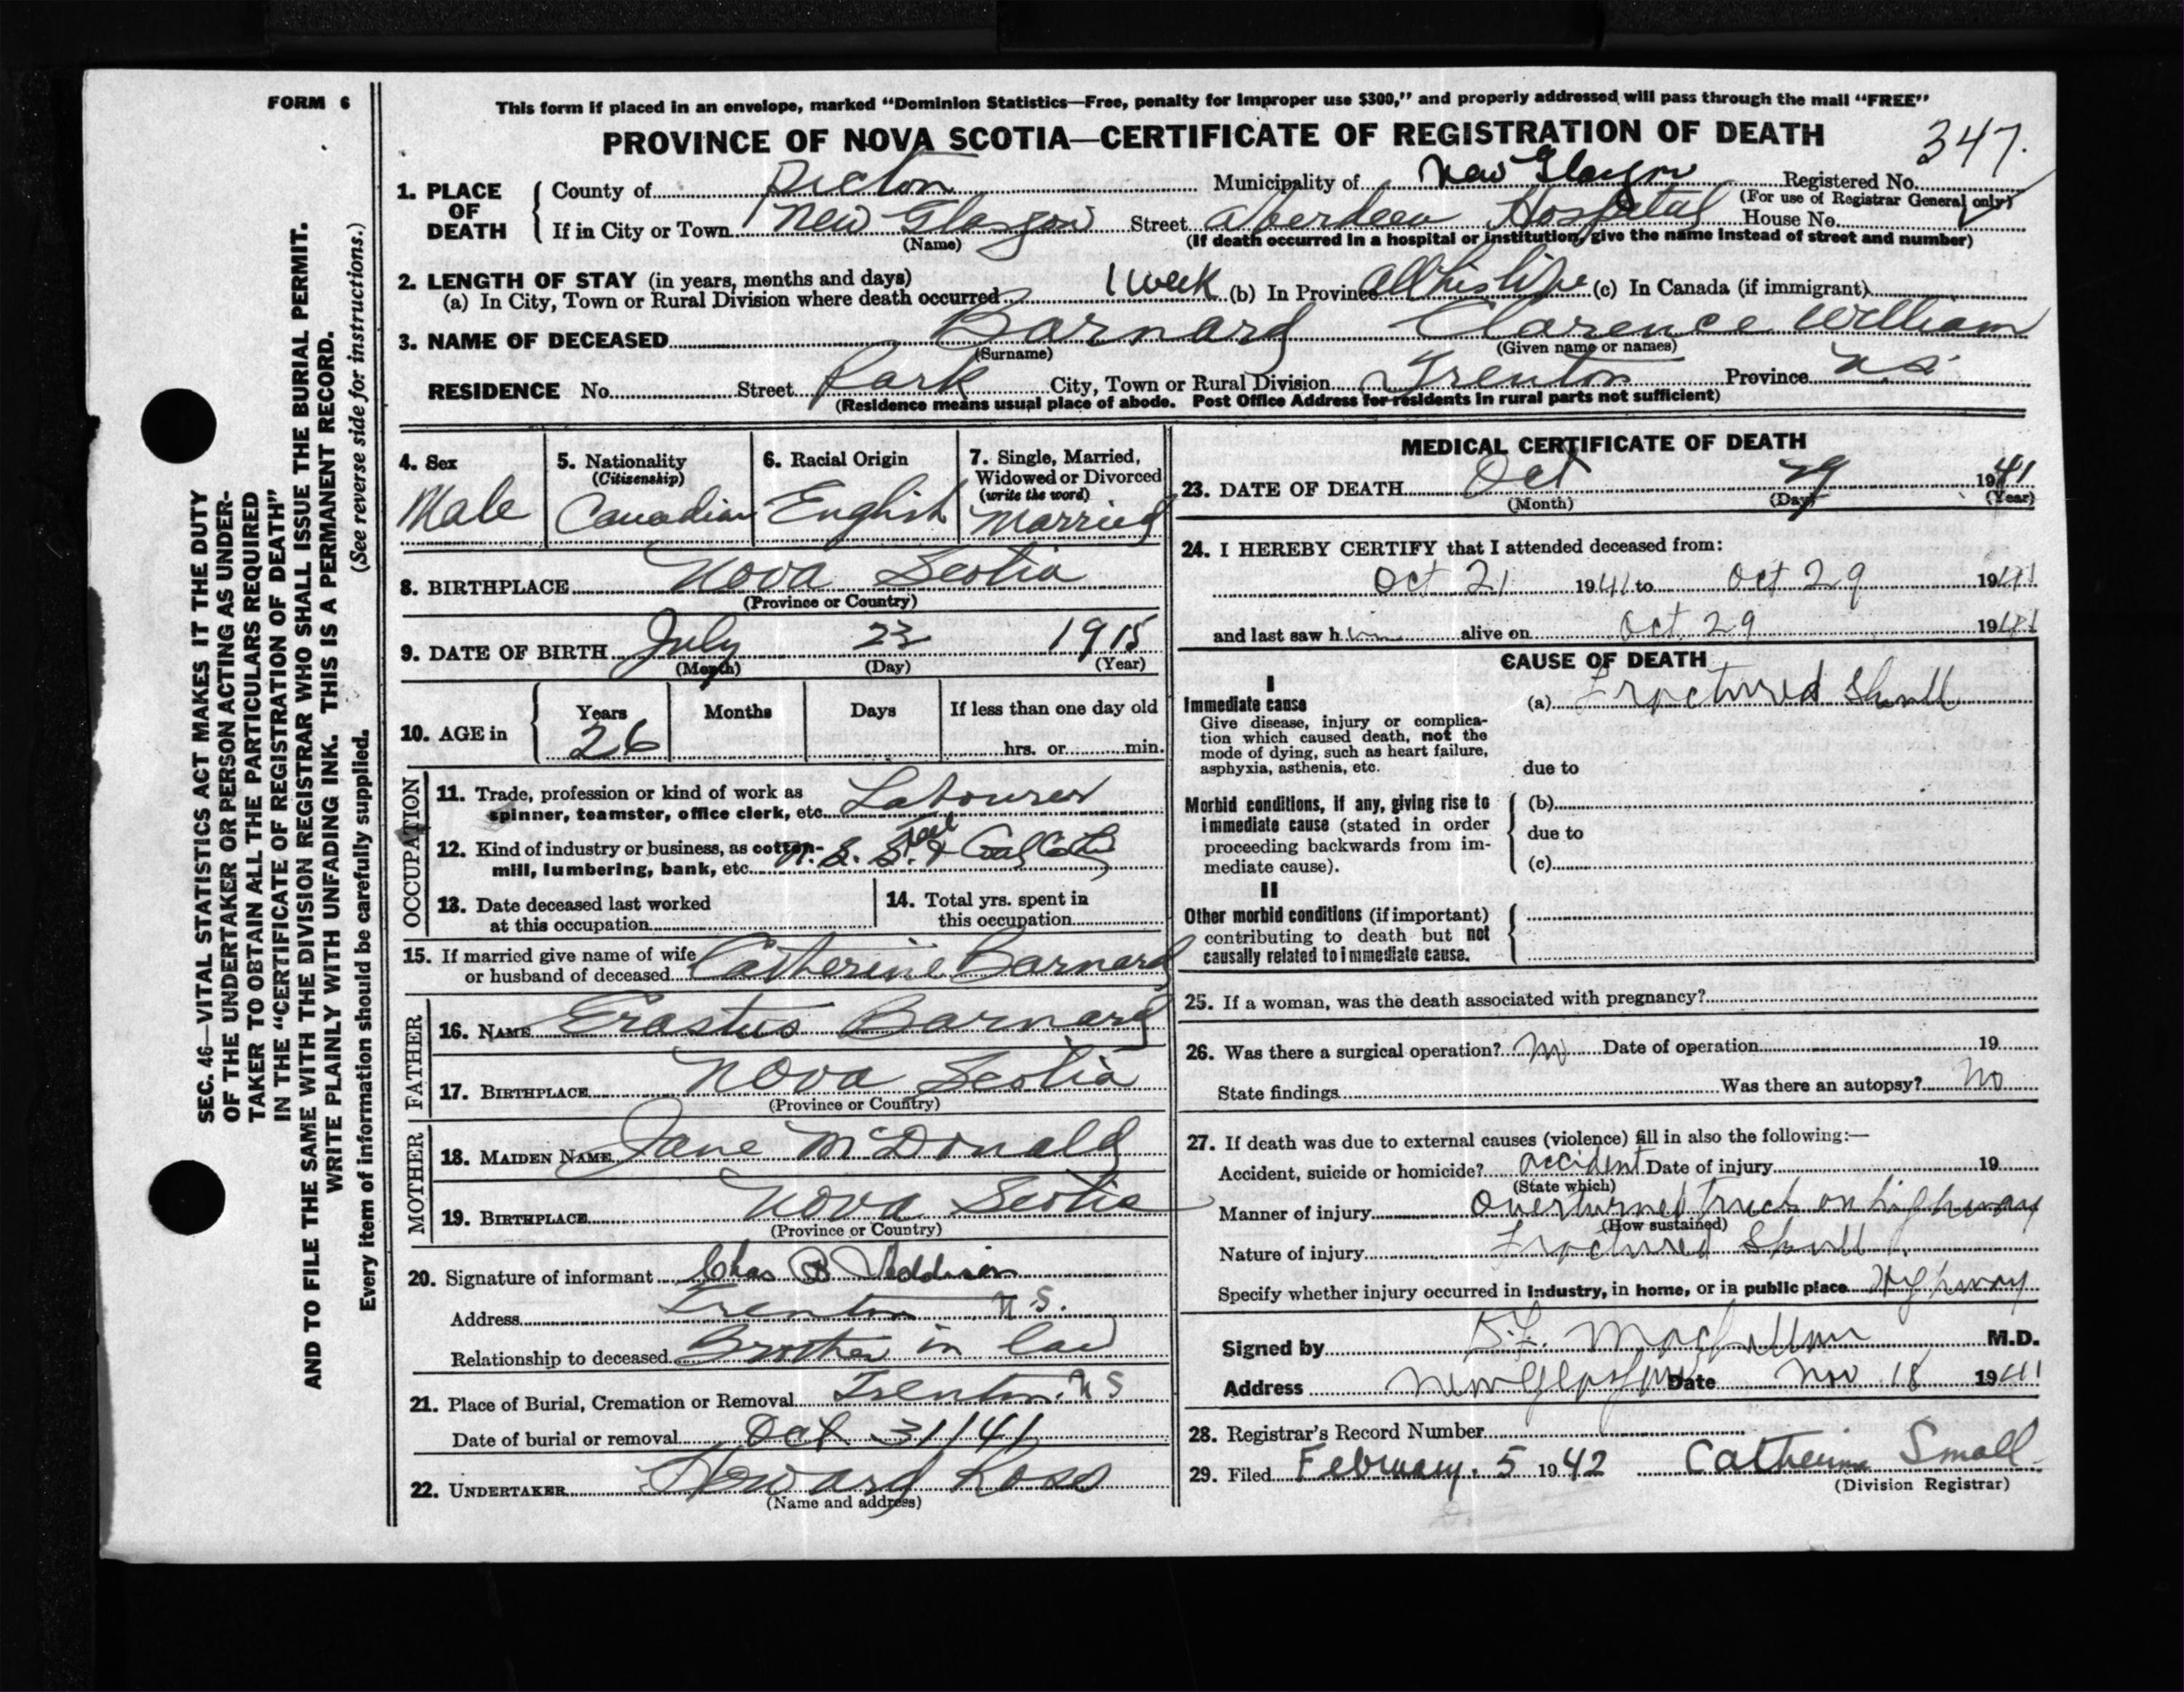 FORM 6
This form if placed in an envelope, marked "Dominion Statistics—Free, penalty for improper use $300," and properly addressed will pass through the mail "FREE"
PROVINCE OF NOVA SCOTIA—CERTIFICATE OF REGISTRATION OF DEATH
347.
1. PLACE OF DEATH
County of Pictou Municipality of New Glasgow Registered No.
(For use of Registrar General only)
If in City or Town New Glasgow Street Aberdeen Hospital House No.
(Name) (If death occurred in a hospital or institution, give the name instead of street and number)
2. LENGTH OF STAY (in years, months and days)
(a) In City, Town or Rural Division where death occurred 1 week (b) In Province All his life (c) In Canada (if immigrant)
3. NAME OF DECEASED Barnard Clarence William
(Surname) (Given name or names)
RESIDENCE No. Street Park City, Town or Rural Division Trenton Province N.S.
(Residence means usual place of abode. Post Office Address for residents in rural parts not sufficient)
4. Sex
Male
5. Nationality
(Citizenship)
Canadian
6. Racial Origin
English
7. Single, Married,
Widowed or Divorced
(write the word)
Married
8. BIRTHPLACE Nova Scotia
(Province or Country)
9. DATE OF BIRTH July 23 1915
(Month) (Day) (Year)
10. AGE in
Years Months Days If less than one day old
26 hrs. or min.
OCCUPATION
11. Trade, profession or kind of work as
spinner, teamster, office clerk, etc. Labourer
12. Kind of industry or business, as cotton-
mill, lumbering, bank, etc. N. S. Steel & Coal Co
13. Date deceased last worked
at this occupation
14. Total yrs. spent in
this occupation
15. If married give name of wife
or husband of deceased Catherine Barnard
FATHER
16. NAME Erastus Barnard
17. BIRTHPLACE Nova Scotia
(Province or Country)
MOTHER
18. MAIDEN NAME Jane McDonald
19. BIRTHPLACE Nova Scotia
(Province or Country)
20. Signature of informant Chas B
Address Trenton N.S.
Relationship to deceased Brother in law
21. Place of Burial, Cremation or Removal Trenton. N S
Date of burial or removal Oct 31/41
22. UNDERTAKER Howard Ross
(Name and address)
MEDICAL CERTIFICATE OF DEATH
23. DATE OF DEATH Oct 29 1941
(Month) (Day) (Year)
24. I HEREBY CERTIFY that I attended deceased from:
Oct 21 1941 to Oct 29 1941
and last saw him alive on Oct 29 1941
CAUSE OF DEATH
I
Immediate cause
Give disease, injury or complica-
tion which caused death, not the
mode of dying, such as heart failure,
asphyxia, asthenia, etc.
(a) Fractured Skull
due to
Morbid conditions, if any, giving rise to
immediate cause (stated in order
proceeding backwards from im-
mediate cause).
(b)
due to
(c)
II
Other morbid conditions (if important)
contributing to death but not
causally related to immediate cause.
25. If a woman, was the death associated with pregnancy?
26. Was there a surgical operation? no Date of operation 19
State findings Was there an autopsy? no
27. If death was due to external causes (violence) fill in also the following:—
Accident, suicide or homicide? accident Date of injury 19
(State which)
Manner of injury overturned truck on highway
(How sustained)
Nature of injury Fractured Skull
Specify whether injury occurred in industry, in home, or in public place Highway
Signed by M.D.
Address New Glasgow Date Nov 18 1941
28. Registrar's Record Number
29. Filed February. 5 1942 Catherine Small
(Division Registrar)
SEC. 46—VITAL STATISTICS ACT MAKES IT THE DUTY
OF THE UNDERTAKER OR PERSON ACTING AS UNDER-
TAKER TO OBTAIN ALL THE PARTICULARS REQUIRED
IN THE "CERTIFICATE OF REGISTRATION OF DEATH"
AND TO FILE THE SAME WITH THE DIVISION REGISTRAR WHO SHALL ISSUE THE BURIAL PERMIT.
WRITE PLAINLY WITH UNFADING INK. THIS IS A PERMANENT RECORD.
Every item of information should be carefully supplied. (See reverse side for instructions.)